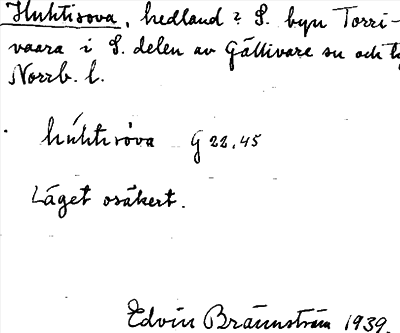 Huhtisova, hedland 2 S. byn Torri-
vaara i S. delen av Gällivare sn och
Norrb. l.
húhtisòva G 22,45
Läget osäkert.
Edvin Brännström 1939.